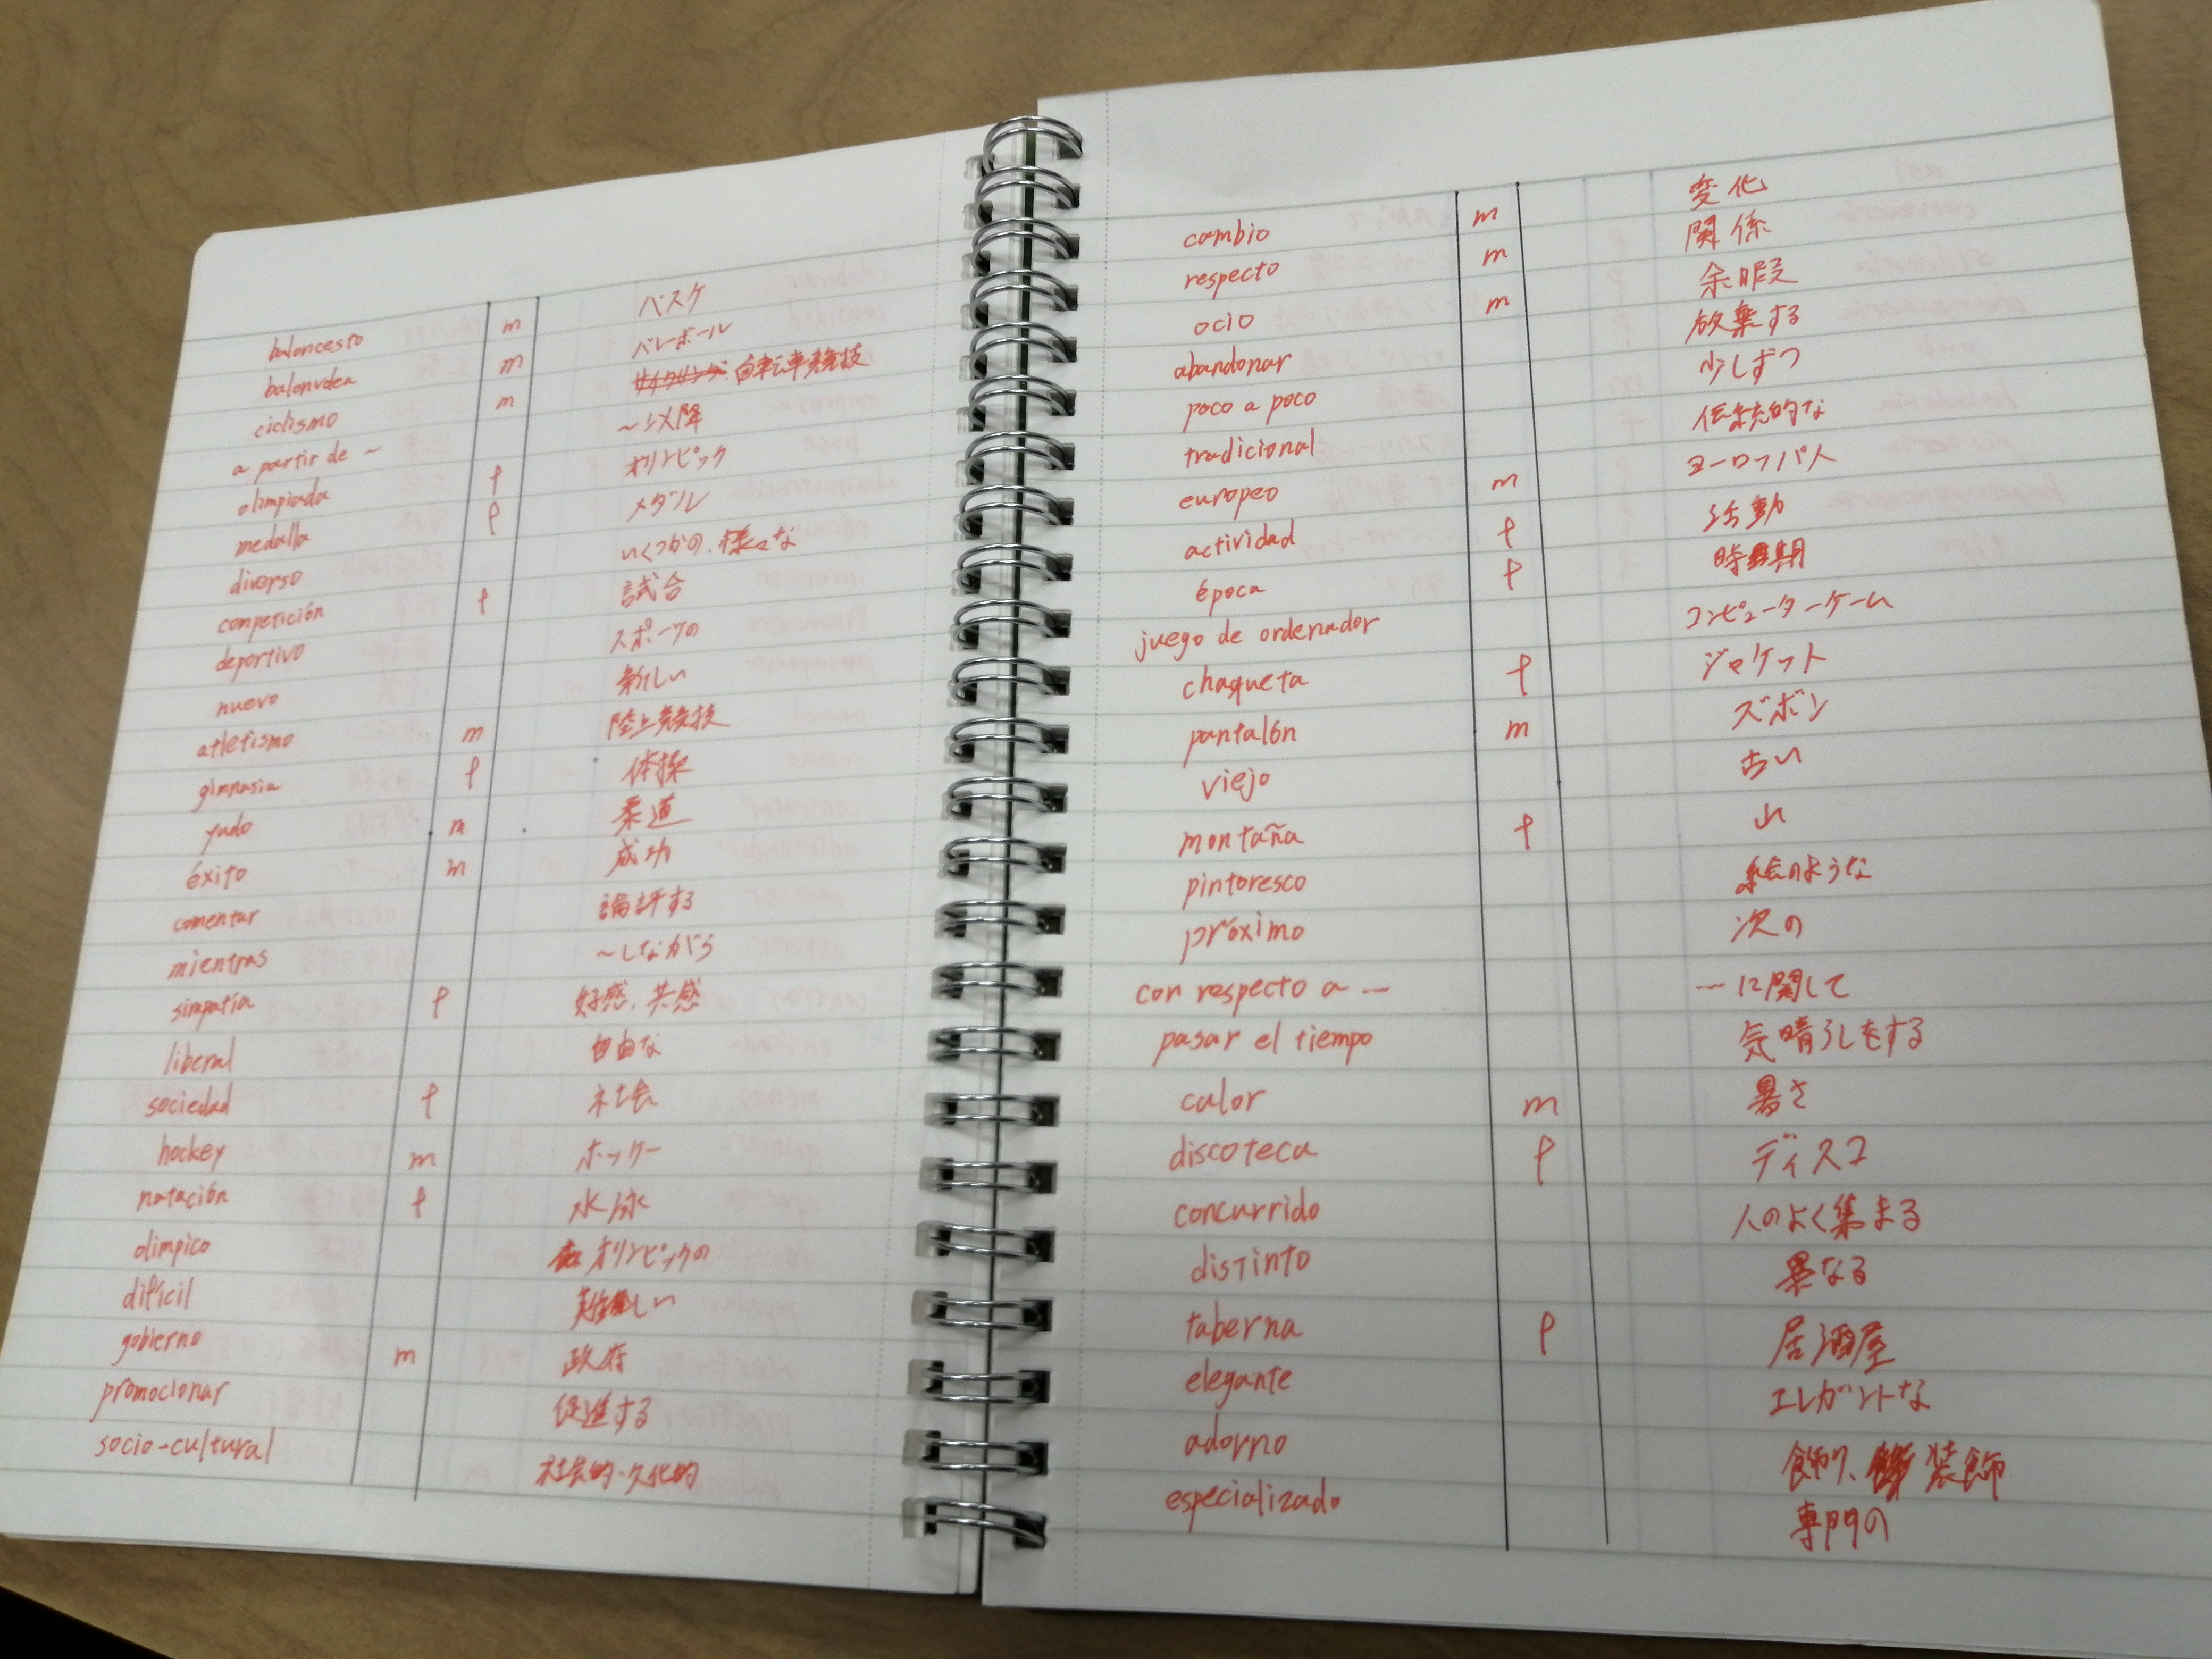 baloncesto m バスケ
balonvolea m バレーボール
ciclismo m サイクリング 自転車競技
a partir de ~ ~以降
olimpiada f オリンピック
medalla f メダル
diverso いくつかの、様々な
competición f 試合
deportivo スポーツの
nuevo 新しい
atletismo m 陸上競技
gimnasia f 体操
yudo m 柔道
éxito m 成功
comentar 論評する
mientras ~しながら
simpatía f 好感、共感
liberal 自由な
sociedad f 社会
hockey m ホッケー
natación f 水泳
olimpico オリンピックの
difícil 難しい
gobierno m 政府
promocionar 促進する
socio-cultural 社会的・文化的
cambio m 変化
respecto m 関係
ocio m 余暇
abandonar 放棄する
poco a poco 少しずつ
tradicional 伝統的な
europeo m ヨーロッパ人
actividad f 活動
época f 時期
juego de ordenador コンピューターゲーム
chaqueta f ジャケット
pantalón m ズボン
viejo 古い
montaña f 山
pintoresco 絵のような
próximo 次の
con respecto a ~ ~に関して
pasar el tiempo 気晴らしをする
calor m 暑さ
discoteca f ディスコ
concurrido 人のよく集まる
distinto 異なる
taberna f 居酒屋
elegante エレガントな
adorno 飾り、装飾
especializado 専門の